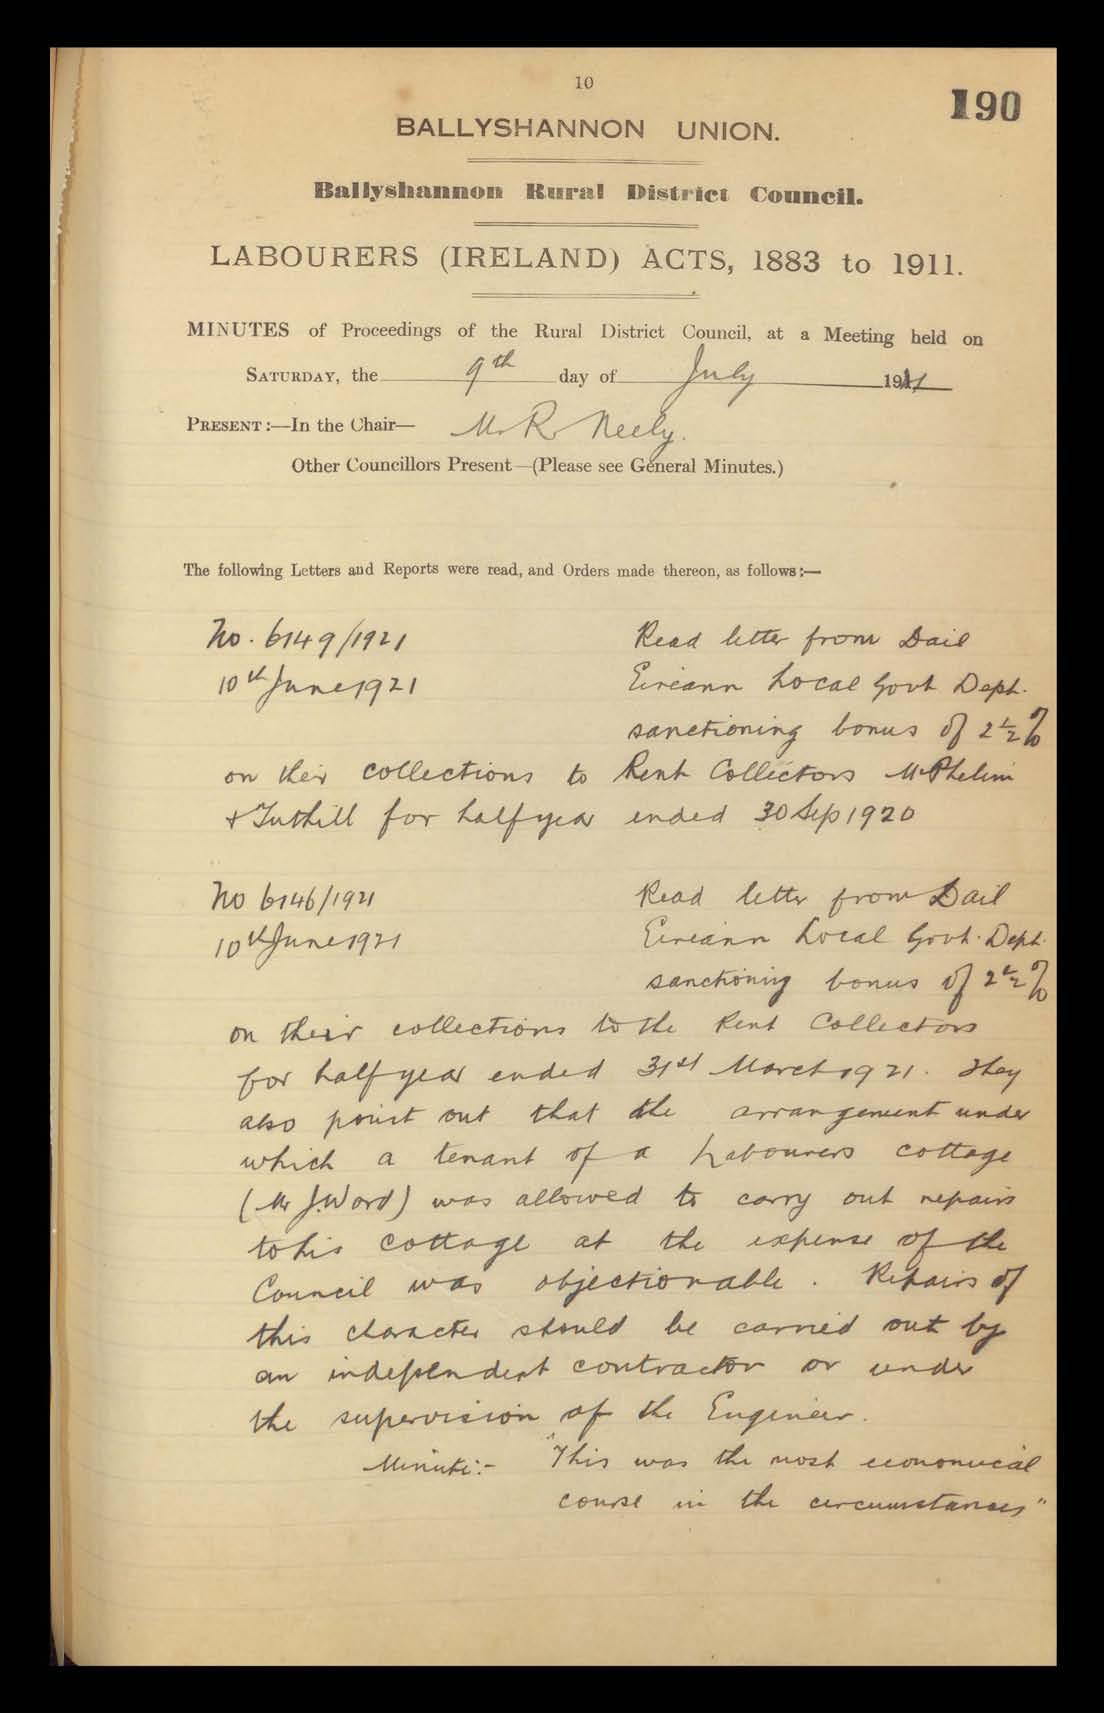 10
190
BALLYSHANNON UNION.
Ballyshannon Rural District Council.
LABOURERS (IRELAND) ACTS, 1883 to 1911.
MINUTES of Proceedings of the Rural District Council, at a Meeting held on
SATURDAY, the 9th day of July 1921
PRESENT:—In the Chair— Mr R. Neely.
Other Councillors Present—(Please see General Minutes.)
The following Letters and Reports were read, and Orders made thereon, as follows:—
No. 6149/1921 Read letter from Dail
10th June 1921 Eireann Local Govt Dept.
sanctioning bonus of 2½%
on their collections to Rent Collectors McPhelim
& Tuthill for half year ended 30 Sep 1920
No 6146/1921 Read letter from Dail
10th June 1921 Eireann Local Govt. Dept.
sanctioning bonus of 2½%
on their collections to the Rent Collectors
for half year ended 31st March 1921. They
also point out that the arrangement under
which a tenant of a Labourers cottage
(Mr J. Ward) was allowed to carry out repairs
to his cottage at the expense of the
Council was objectionable. Repairs of
this character should be carried out by
an independent contractor or under
the supervision of the Engineer.
Minute:- "This was the most economical
course in the circumstances"